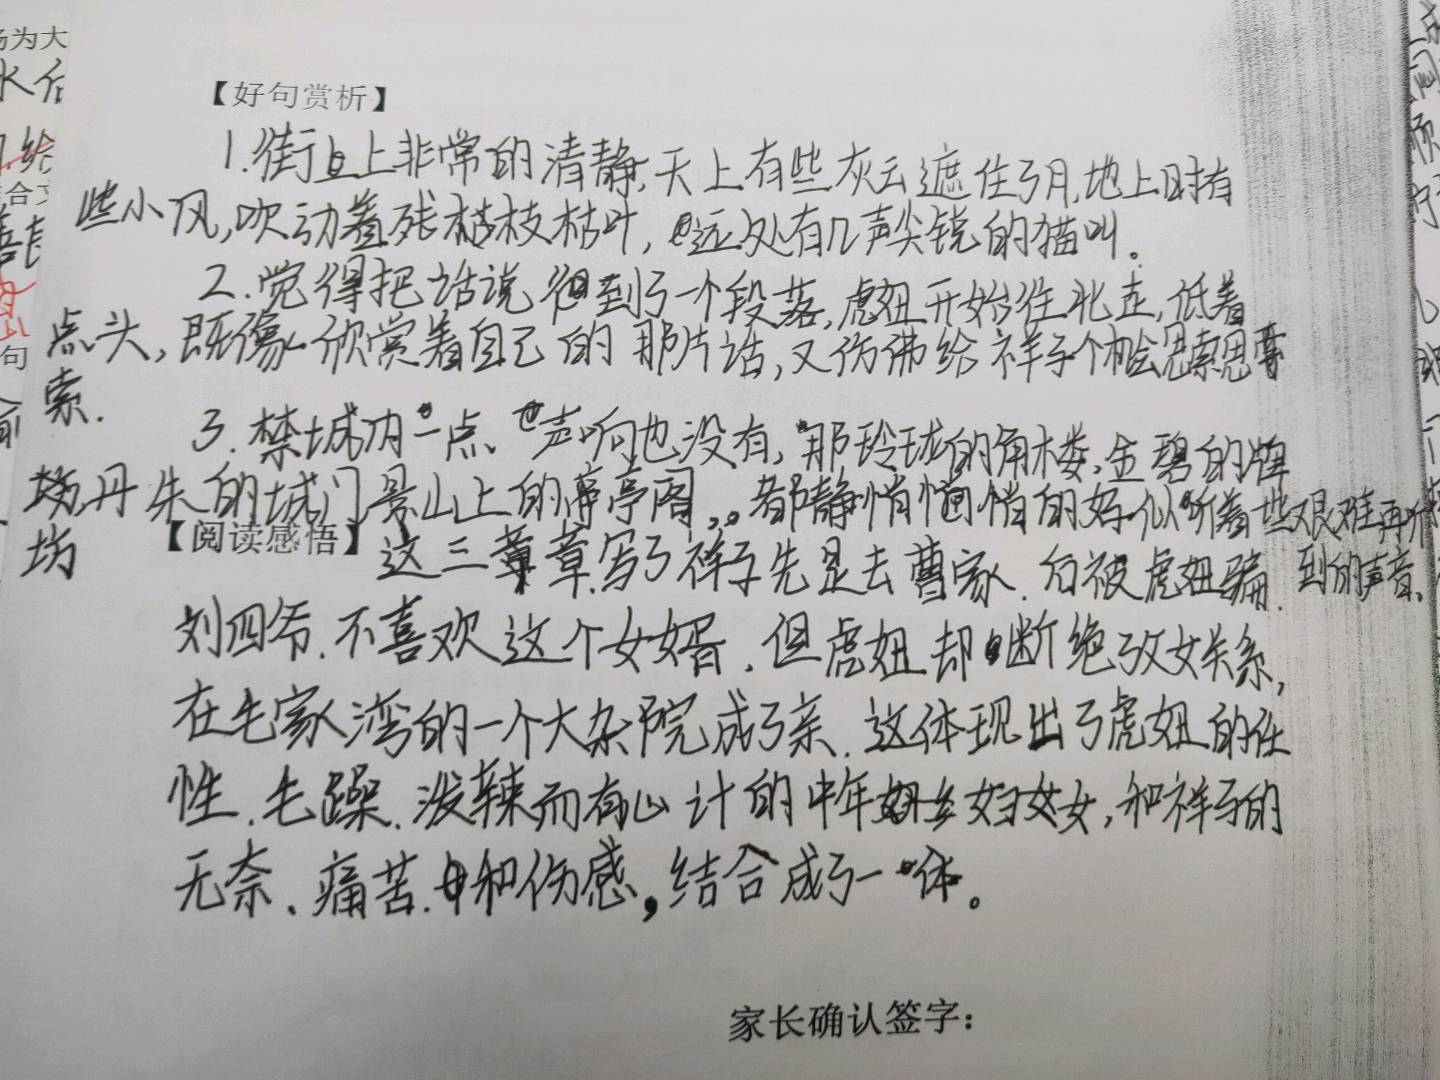 【好句赏析】
1.街上非常的清静,天上有些灰云遮住了月,地上时有
些小风,吹动着残枝枯叶,远处有几声尖锐的猫叫。
2.觉得把话说到了一个段落,虎妞开始往北走,低着
点头,既像欣赏着自己的那片话,又仿佛给祥子个机会思索思
索.
3.禁城内一点声响也没有,那玲珑的角楼,金碧的牌
坊,丹朱的城门景山上的亭阁,都静悄悄的好似听着些艰难再
坊
到的声音、
【阅读感悟】
这三章写了祥子先是去曹家.后被虎妞骗.
刘四爷.不喜欢这个女婿.但虎妞却断绝父女关系,
在毛家湾的一个大杂院成了亲.这体现出了虎妞的任
性.毛躁.泼辣而有心计的中年妇女,和祥子的
无奈、痛苦.和伤感,结合成了一体。
家长确认签字: